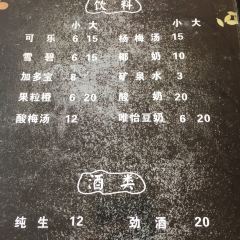 饮料
小 大 小 大
可乐 6 15 杨梅汤 15
雪碧 6 15 椰奶 10
加多宝 8 矿泉水 3
果粒橙 6 20 酸奶 20
酸梅汤 12 唯怡豆奶 6 20
酒类
纯生 12 劲酒 20